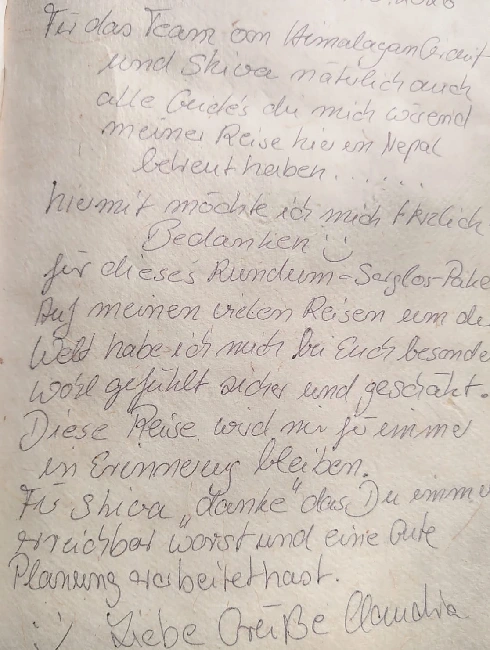 Für das Team von Himalayan
und Shiva natürlich auch
alle Guides du mich wärend
meiner Reise hier in Nepal
betreut haben......
hiermit möchte ich mich herzlich
Bedanken :)
für dieses Rundum-Sorglos-Pake
Auf meinen vielen Reisen um de
Welt habe ich mich bei Euch besonde
wohl gefühlt sicher und geschätzt.
Diese Reise wird mir für immer
in Erinnerung bleiben.
Für Shiva „danke" das Du imme
erreichbar warst und eine Gute
Planung erarbeitet hast.
:) Liebe Grüße Claudia